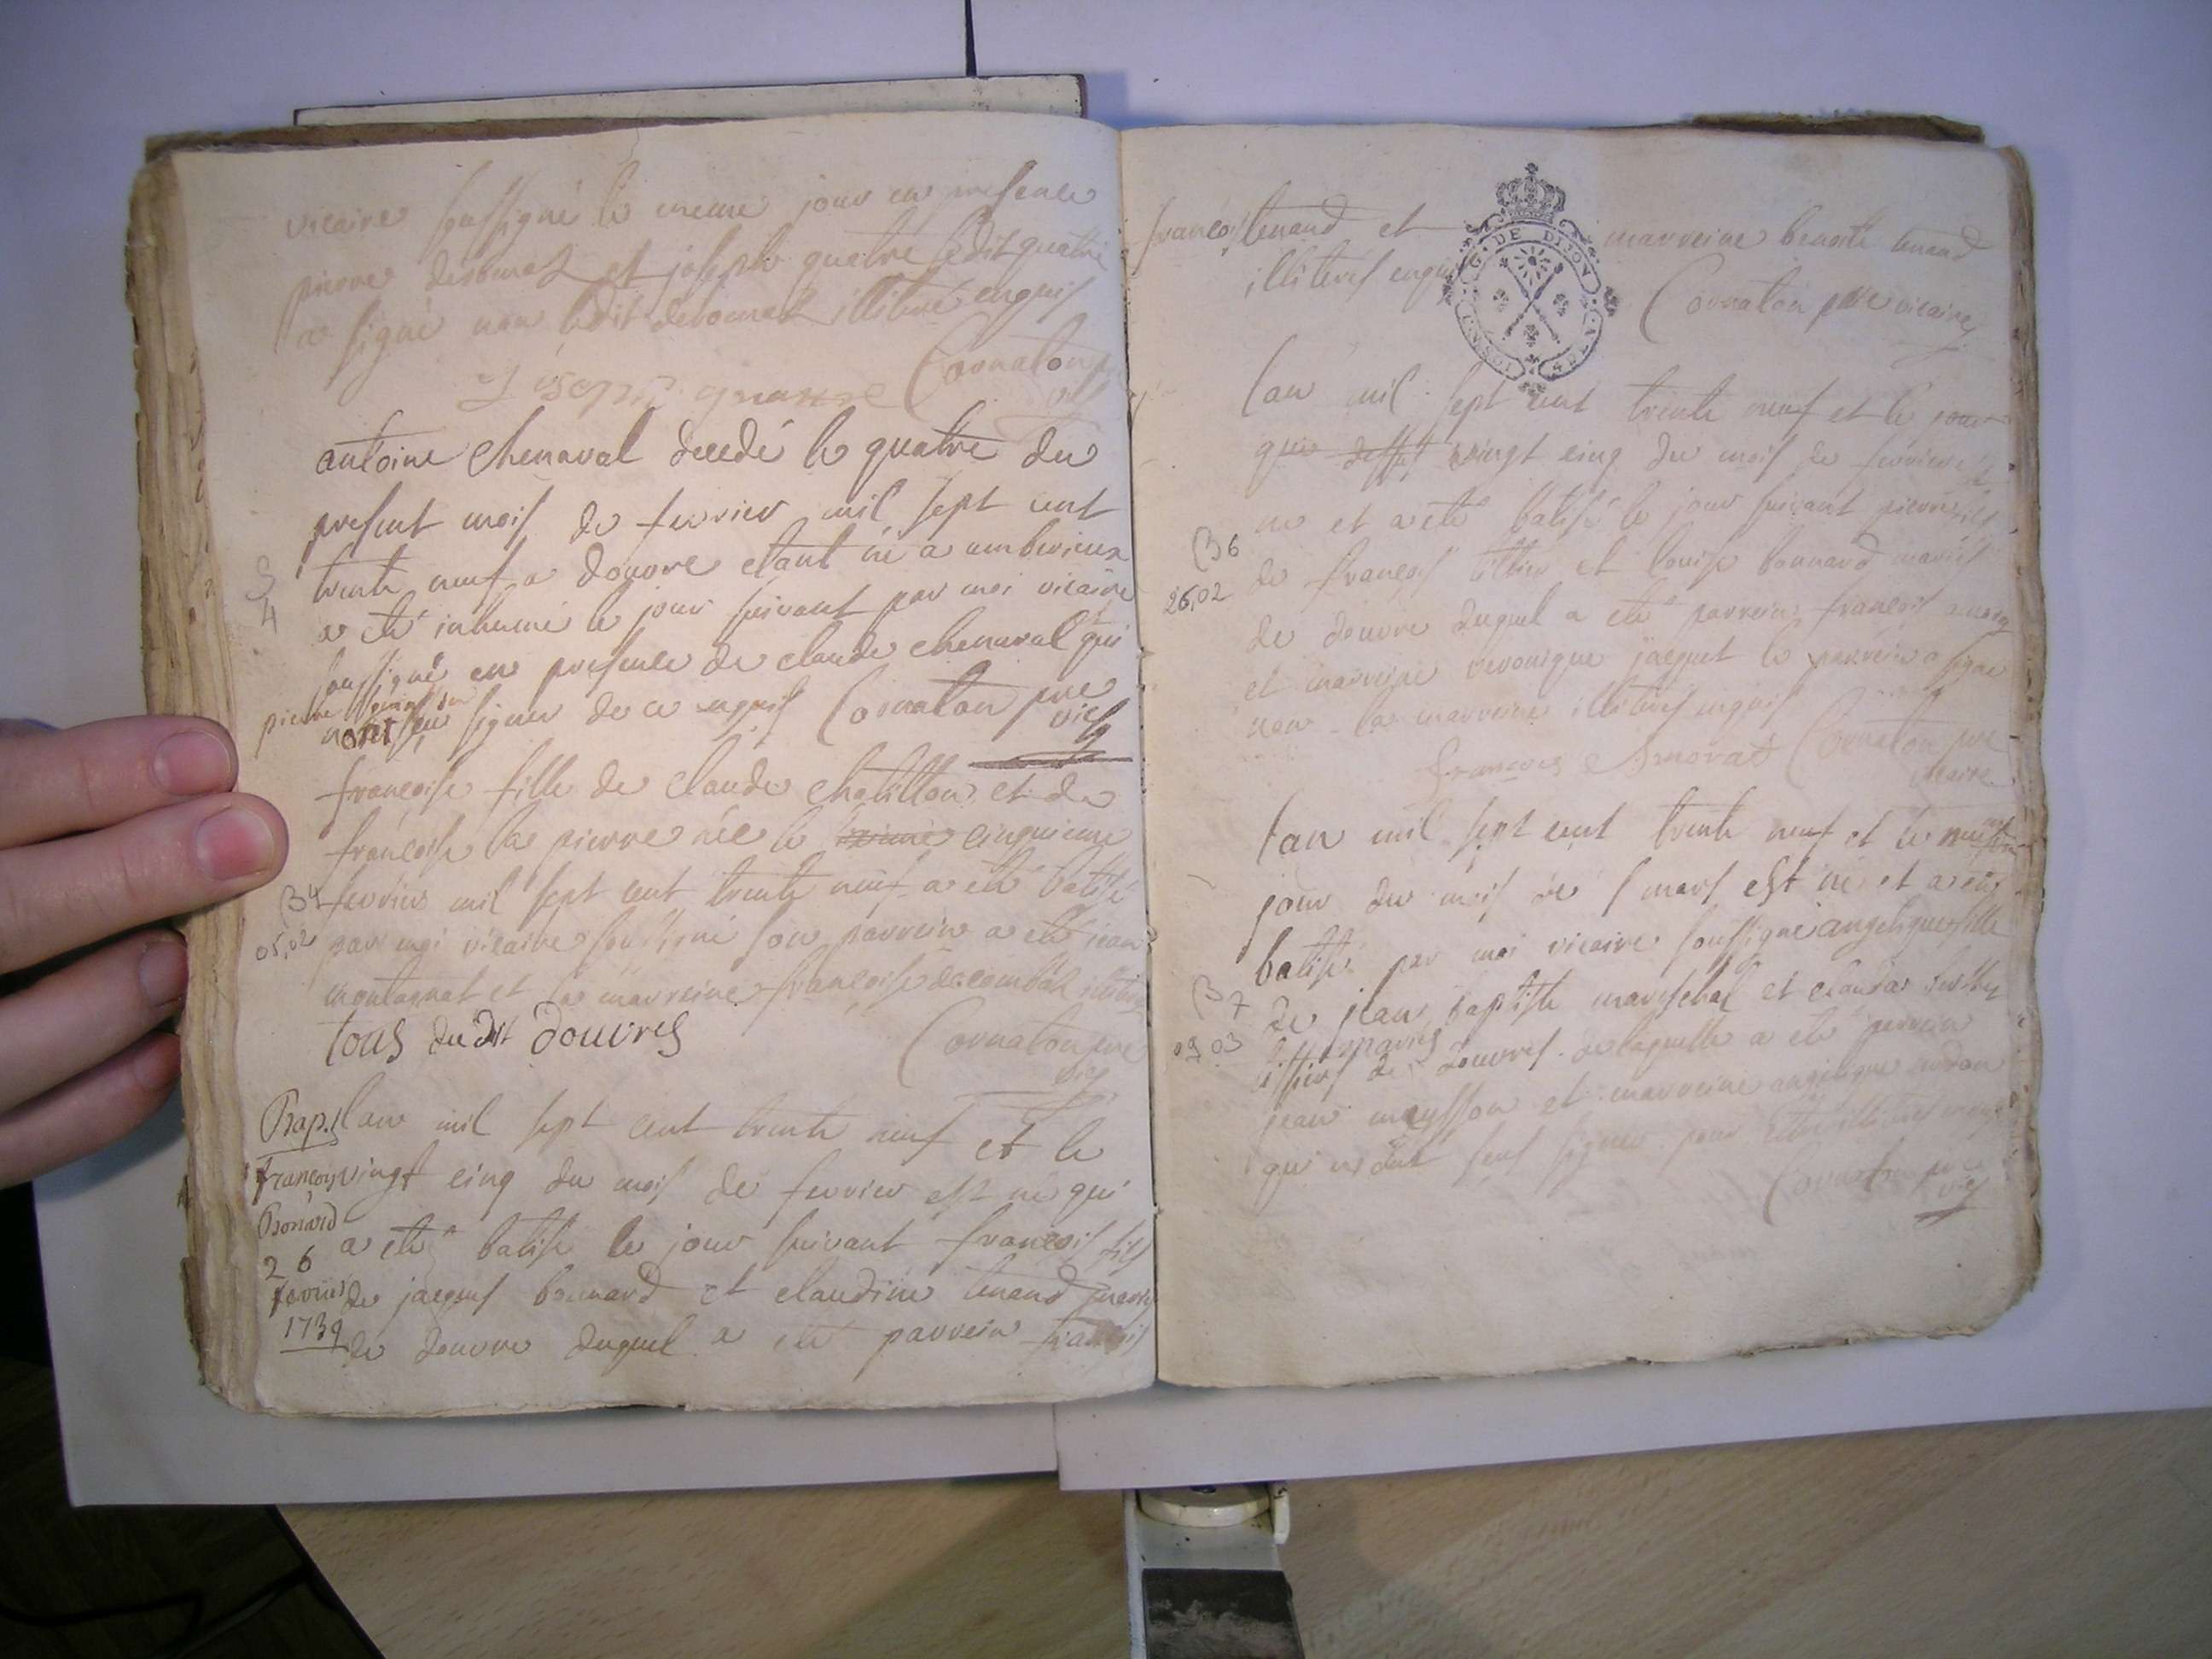 vicaire soussigné le meme jour en presence
pierre et joseph quatre ledit quatre
a signé non ledit illitere enquis
Cornaton
Joseph quatre
antoine Chenaval decedé le quatre du
present mois de fevrier mil sept cent
trente neuf a douvre etant né a amberieux
S
4
a eté inhumé le jour suivant par moi vicaire
soussigné en presence de claude chenaval qui
pierre
signer de ce enquis Cornaton pre
vic
françoise fille de Claude Chatillon et de
françoise la pierre née le cinquieme
B 4
fevrier mil sept cent trente neuf a eté batisé
05,02
par moi vicaire soussigné son parrein a eté jean
montagnat et la marreine françoise
tous du dit douvres
Cornaton pre
vic
Bap. lan mil sept cent trente neuf et le
françois vingt cinq du mois de fevrier est né qui
Bonard
a eté batise le jour suivant françois fils
26
fevrier de jacques bonnard et claudine tenand mariés
1739
de douvre duquel a eté parrein francois
françois tenand et marreine benoite tenand
illiterés enquis
G. DE DIJON
Cornaton pre vicaire
lan mil sept cent trente neuf et le jour
que dessus vingt cinq du mois de fevrier est
né et a eté batisé le jour suivant pierre fils
B 6
26,02
de françois littier et louise bonnard mariés
de douvre duquel a eté parrein françois
et marreine veronique jacquet le parrein a signé
non la marreine illiteres enquis
françois Amorat Cornaton pre
vicaire
lan mil sept cent trente neuf et le
jour du mois de mars est né et a eté
batisé par moi vicaire soussigné angelique fille
B 7
09 03
de jean baptiste mareschal et claudaz
mariés
de douvres de laquelle a eté parrein
jean et marreine angelique
qui nont seus signer pour etre illiteres enquis
Cornaton pre
vic